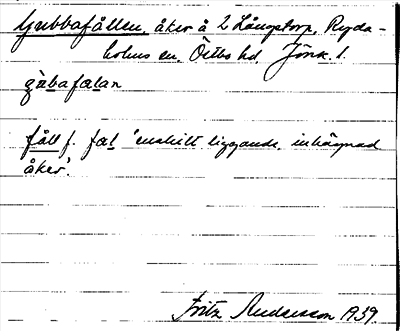 Gubbafållen, åker å 2 Långstorp, Ryda-
holms sn. Östbo hd Jönk. l.
gùbafalan
fåll f. fal 'enskilt liggande, inhägnad
åker'.
Fritz Andersson 1939